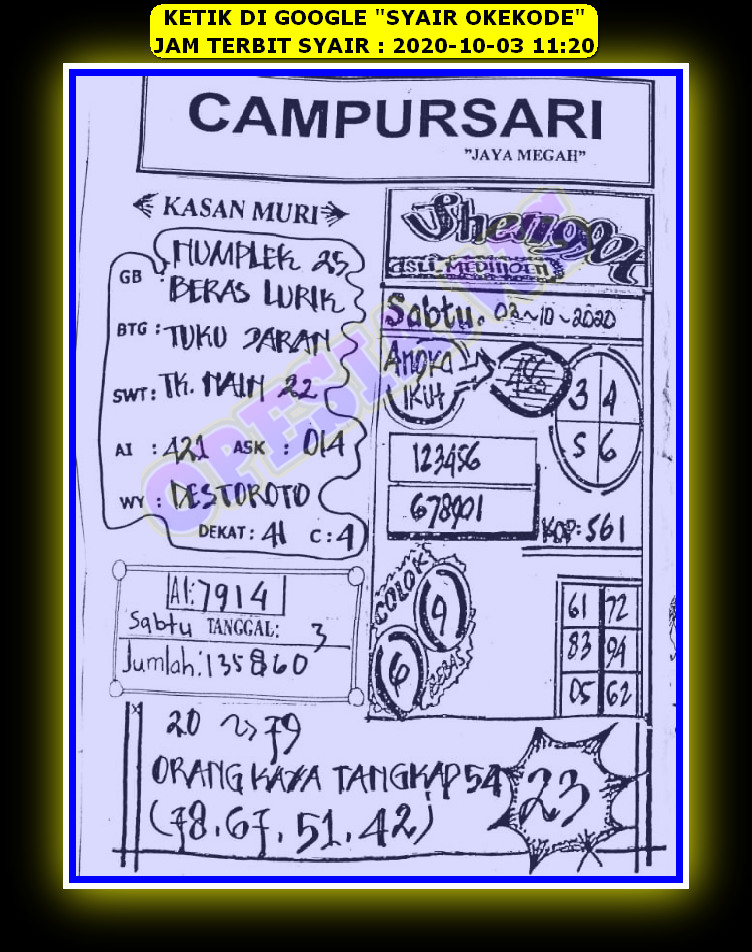 KETIK DI GOOGLE "SYAIR OKEKODE"
JAM TERBIT SYAIR : 2020-10-03 11:20
CAMPURSARI
"JAYA MEGAH"
KASAN MURI
GB : HUMPLEK 25
BERAS LURIK
BTG : TUKU JARAN
SWT : TK. MAIN 22
AI : 421 ASK : 014
WY : DESTOROTO
DEKAT : 41 C : 4
AI: 7914
Sabtu TANGGAL: 3
Jumlah: 135860
Shengpot
asli. MEDINOEN
Sabtu. 03~10~2020
ANGKA
IKUT
3 4
5 6
123456
678901
KOP: 561
COLOK
9
6
BEBAS
61 72
83 94
05 62
20 79
ORANG KAYA TANGKAP 54
(78.67.51.42)
23